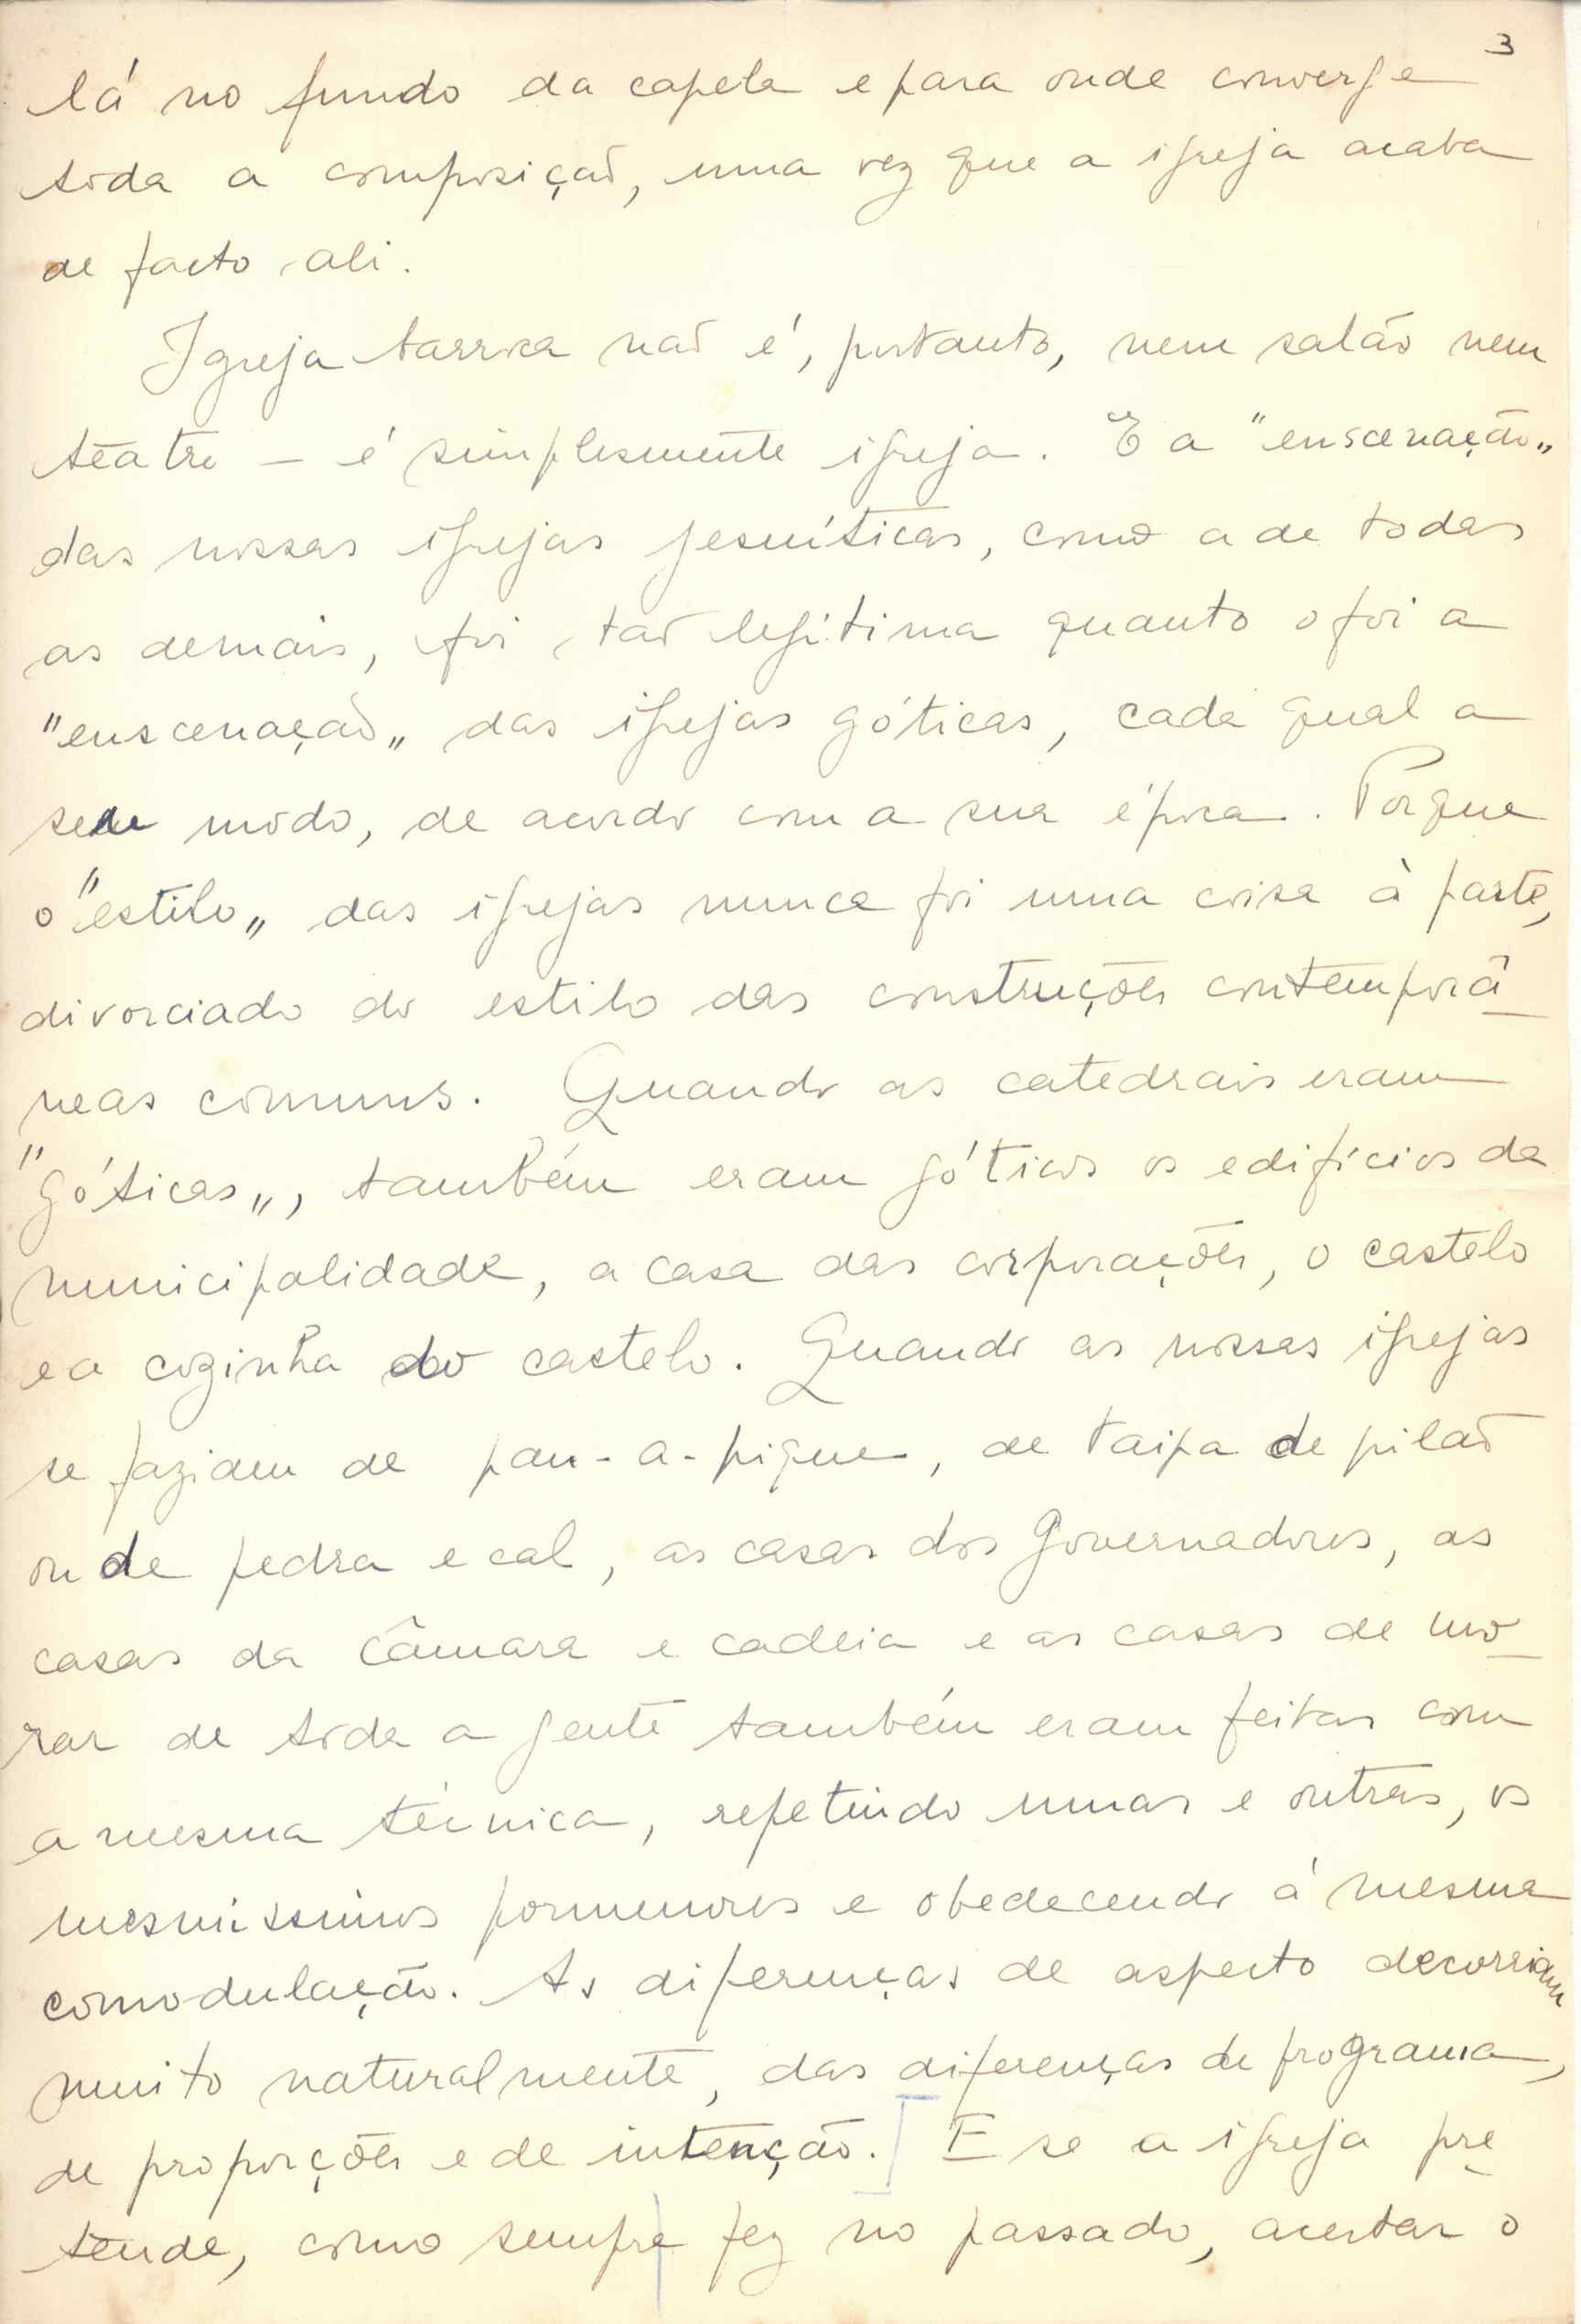 3
lá no fundo da capela e para onde converge
toda a composição, uma vez que a igreja acaba
de facto ali.
Igreja barroca não é, portanto, nem salão nem
teatro — é simplesmente igreja. E a "enscenação„
das nossas igrejas jesuíticas, como a de todas
as demais, foi tão legítima quanto o foi a
"enscenação„ das igrejas góticas, cada qual a
seu modo, de acordo com a sua época. Porque
o "estilo„ das igrejas nunca foi uma coisa à parte,
divorciado do estilo das construções contemporâ
neas comuns. Quando as catedrais eram
"góticas„, também eram góticos os edifícios da
municipalidade, a casa das corporações, o castelo
e a cozinha do castelo. Quando as nossas igrejas
se faziam de pau-a-pique, de taipa de pilão
ou de pedra e cal, as casas dos governadores, as
casas da câmara e cadeia e as casas de mo
rar de toda a gente também eram feitas com
a mesma técnica, repetindo umas e outras, os
mesmissimos pormenores e obedecendo á mesma
comodulação. As diferenças de aspecto decorriam
muito naturalmente, das diferenças de programa,
de proporções e de intenção. E se a igreja pre
tende, como sempre fez no passado, acertar o